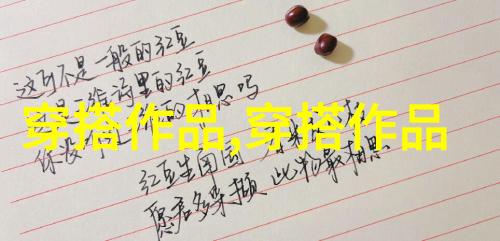 这可不是一般的红豆
是王维诗里的红豆
你没 的相思吗
穿搭作品,穿搭作品
红豆生南国
愿君多采撷 此物最相思